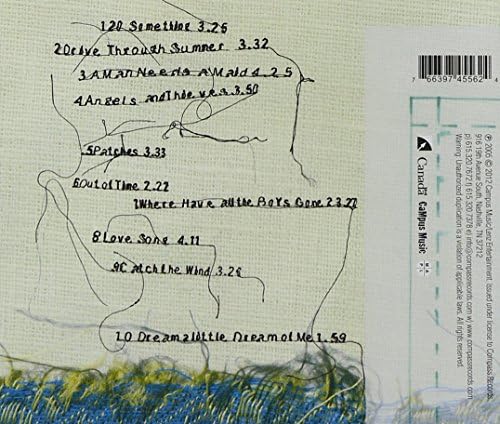 120 Something 3.25
2Drive Through Summer 3.32
3A Man Needs A Maid 4.25
4Angels and Thieves 3.50
5Patches 3.33
6Out of Time 2.22
7Where Have all the Boys Gone 23.27
8Love Song 4.11
9Catch the Wind 3.26
10 Dream a little Dream of Me 1.59
7 66397 45562 4
Canada
CaMpus Music
℗ 2005 © 2012 Campus Music/Lenz Entertainment. Issued under license to Compass Records.
916 19th Avenue South, Nashville, TN 37212
p) 615.320.7672 f) 615.320.7378 e) info@compassrecords.com w) www.compassrecords.com
Warning: Unauthorized duplication is a violation of applicable laws. All rights reserved.